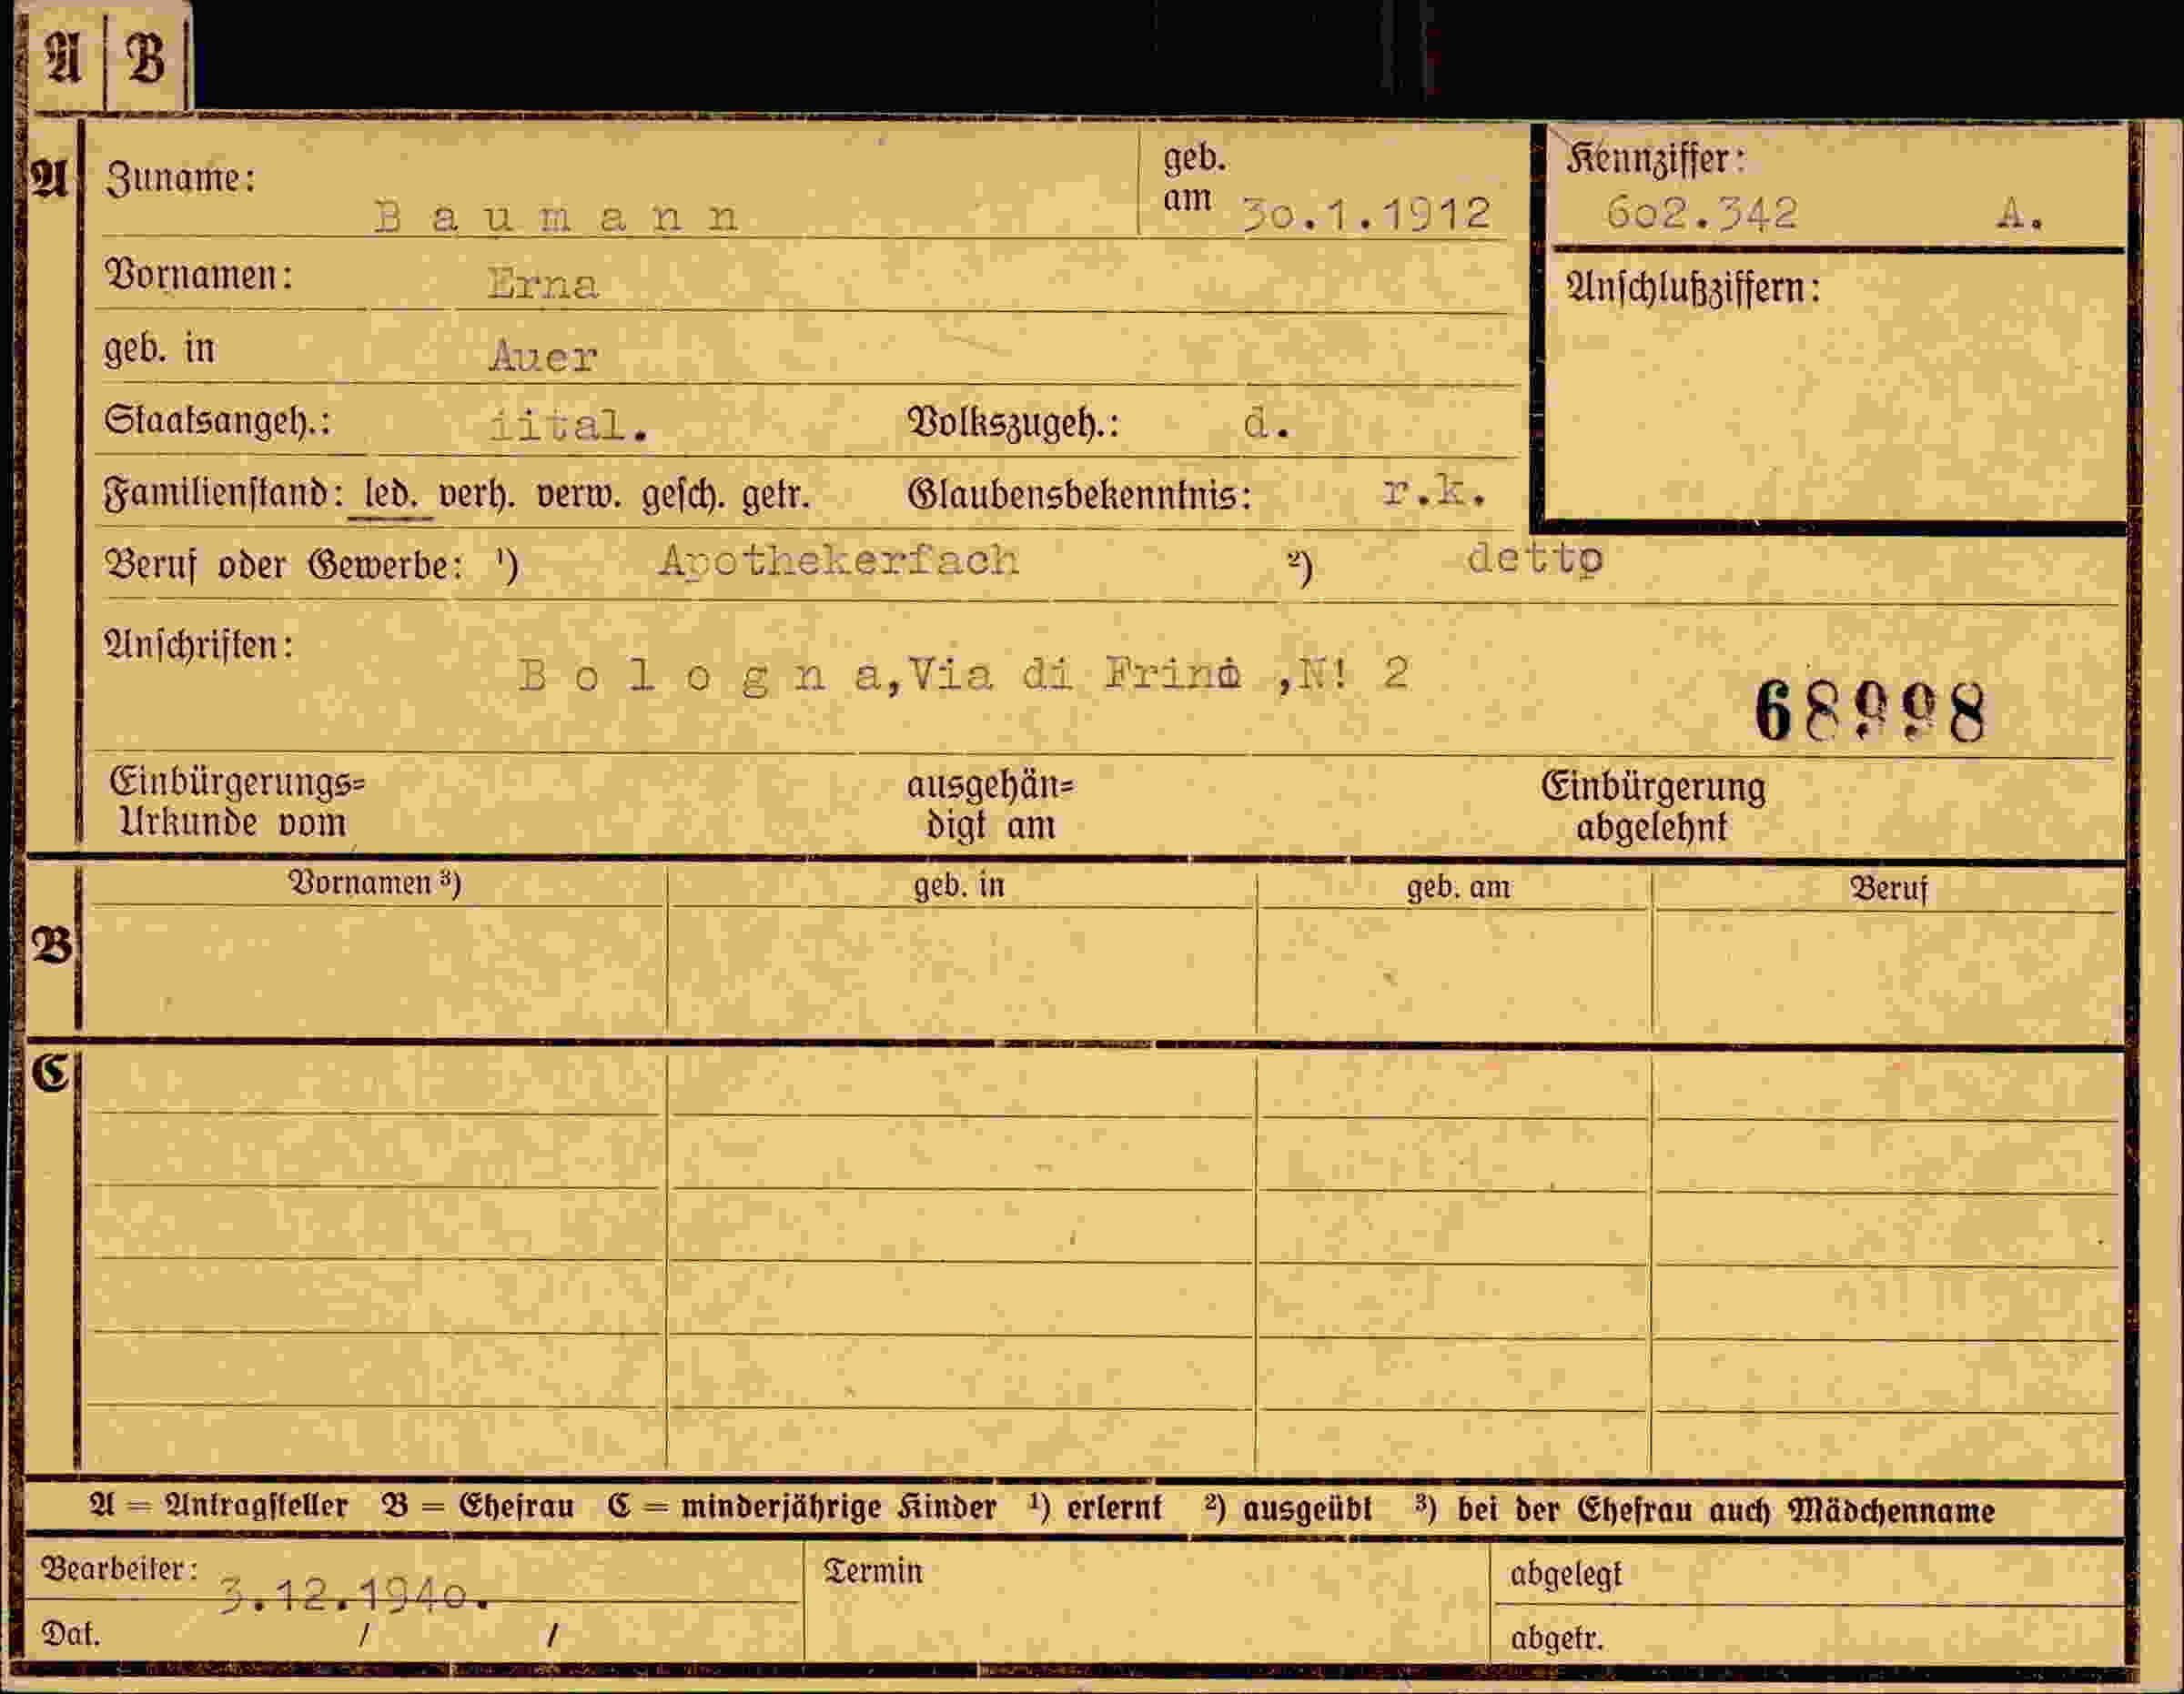 A B
A Zuname: Baumann geb. am 30.1.1912 Kennziffer: 602.342 A.
Vornamen: Erna Anschlußziffern:
geb. in Auer
Staatsangeh.: iital. Volkszugeh.: d.
Familienstand: led. verh. verw. gesch. getr. Glaubensbekenntnis: r.k.
Beruf oder Gewerbe: ¹) Apothekerfach ²) detto
Anschriften: Bologna, Via di ,N! 2
68998
Einbürgerungs= ausgehän= Einbürgerung
Urkunde vom digt am abgelehnt
Vornamen ³) geb. in geb. am Beruf
B
C
A = Antragsteller B = Ehefrau C = minderjährige Kinder ¹) erlernt ²) ausgeübt ³) bei der Ehefrau auch Mädchenname
Bearbeiter: 3.12.1940. Termin abgelegt
Dat. / / abgetr.